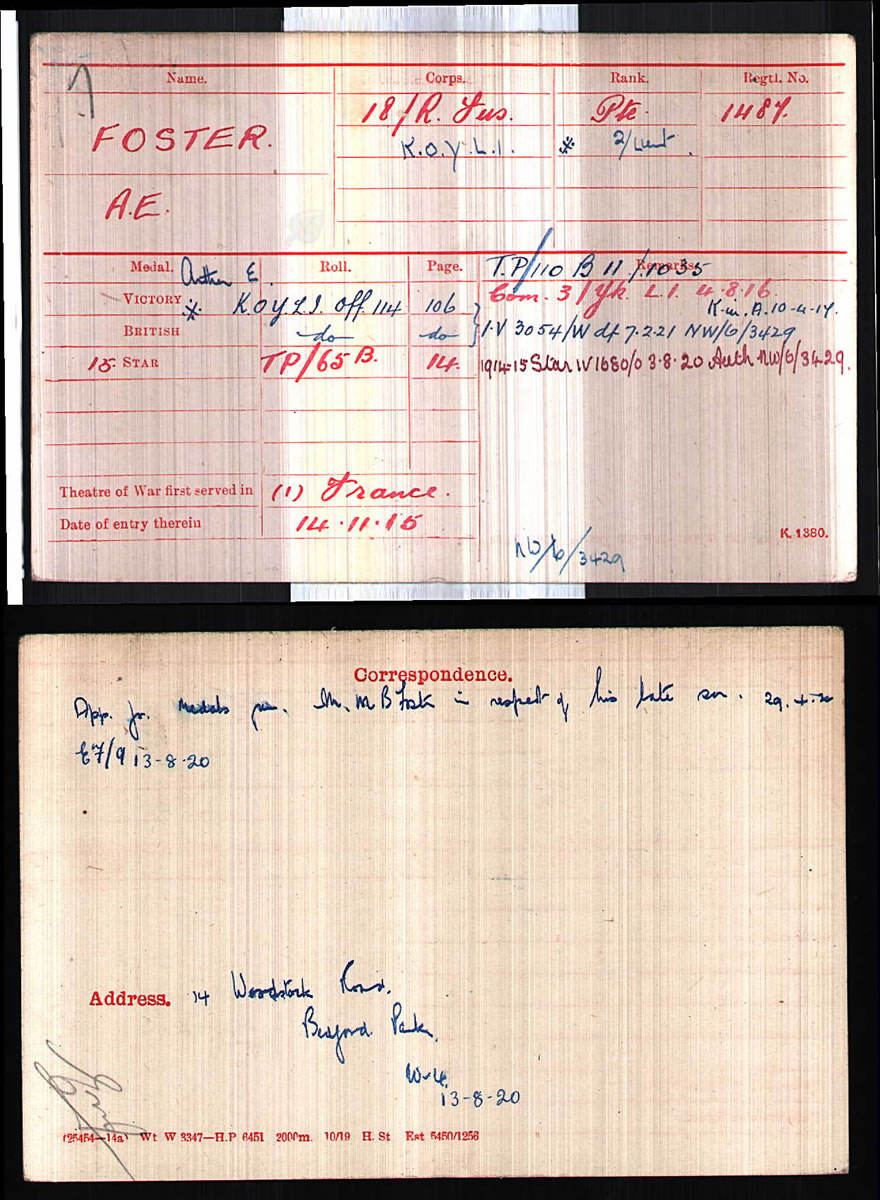 Name. Corps. Rank. Regtl. No.
FOSTER. 18/R. Fus. Pte. 1487.
K.O.Y.L.I. * 2/Lieut.
A.E.
Medal. Arthur E. Roll. Page. Remarks.
T.P/110 B 11 /1035
Com. 3/Yk. L.I. 4.8.16
K-in, A. 10-4-17.
VICTORY * K.O.Y.L.I. Off 114 106
BRITISH do do I.V 3054/W df 7.2.21 NW/6/3429
15. STAR TP/65 B. 14. 1914-15 Star IV 1680/0 3.8.20 Auth NW/6/3429.
Theatre of War first served in (1) France.
Date of entry therein 14.11.15
K. 1380.
NW/6/3429
Correspondence.
App. for Medals in respect of his late son. 29.4.20
E7/9 13-8-20
Address. 14 Woodstock Road.
Bedford Park.
W.4.
13-8-20
(25454—14a) Wt W 3347—H.P 6451 2000m. 10/19 H. St Est 5450/1256